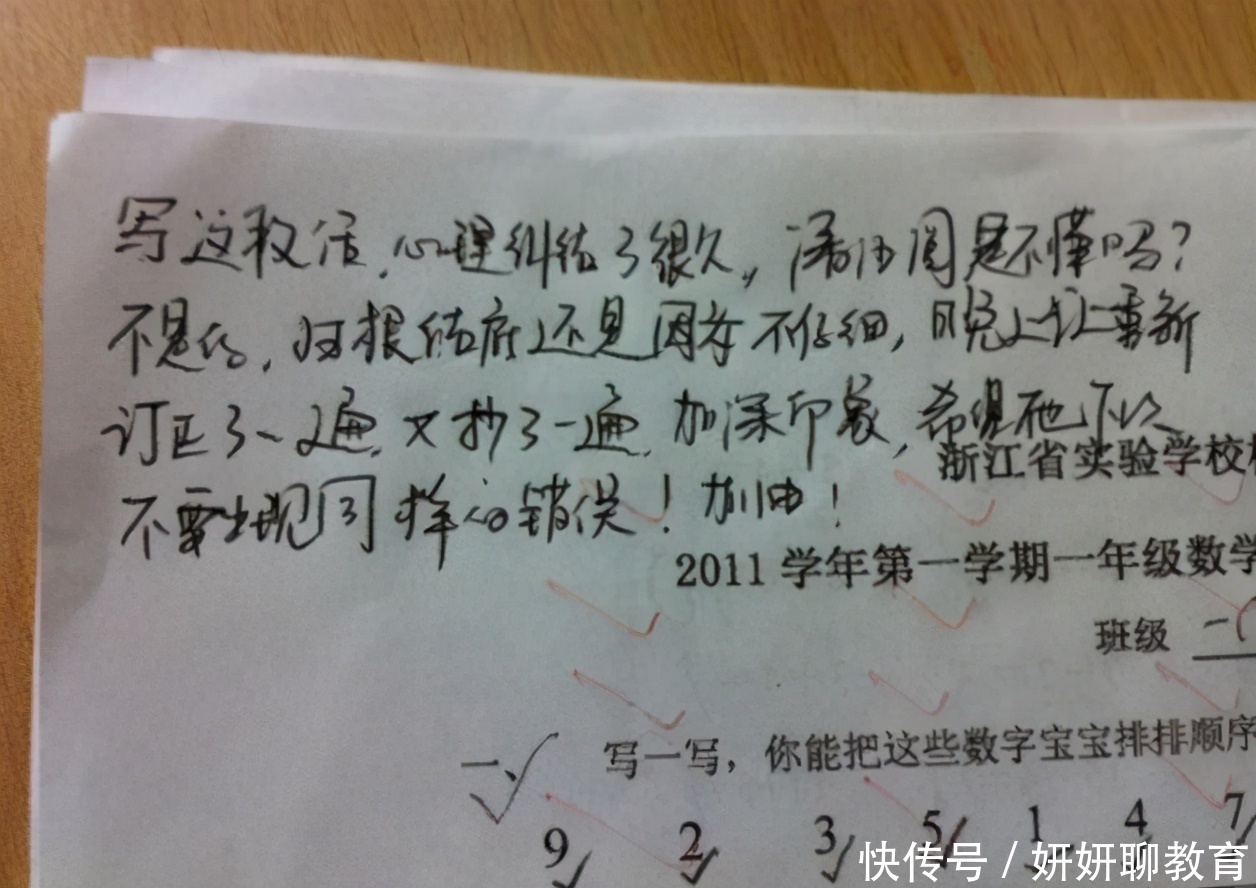 写这段话，心理纠结了很久，潘沛周是不懂吗？
不是的，归根结底还是因为不仔细，晚上让重新
订正了一遍，又抄了一遍，加深印象，希望他下次
不要出现同样的错误！加油！
浙江省实验学校
2011 学年第一学期一年级数学
班级 一(
一、 写一写，你能把这些数字宝宝排排顺序
9 2 3 5 1 4 7
快传号 / 妍妍聊教育